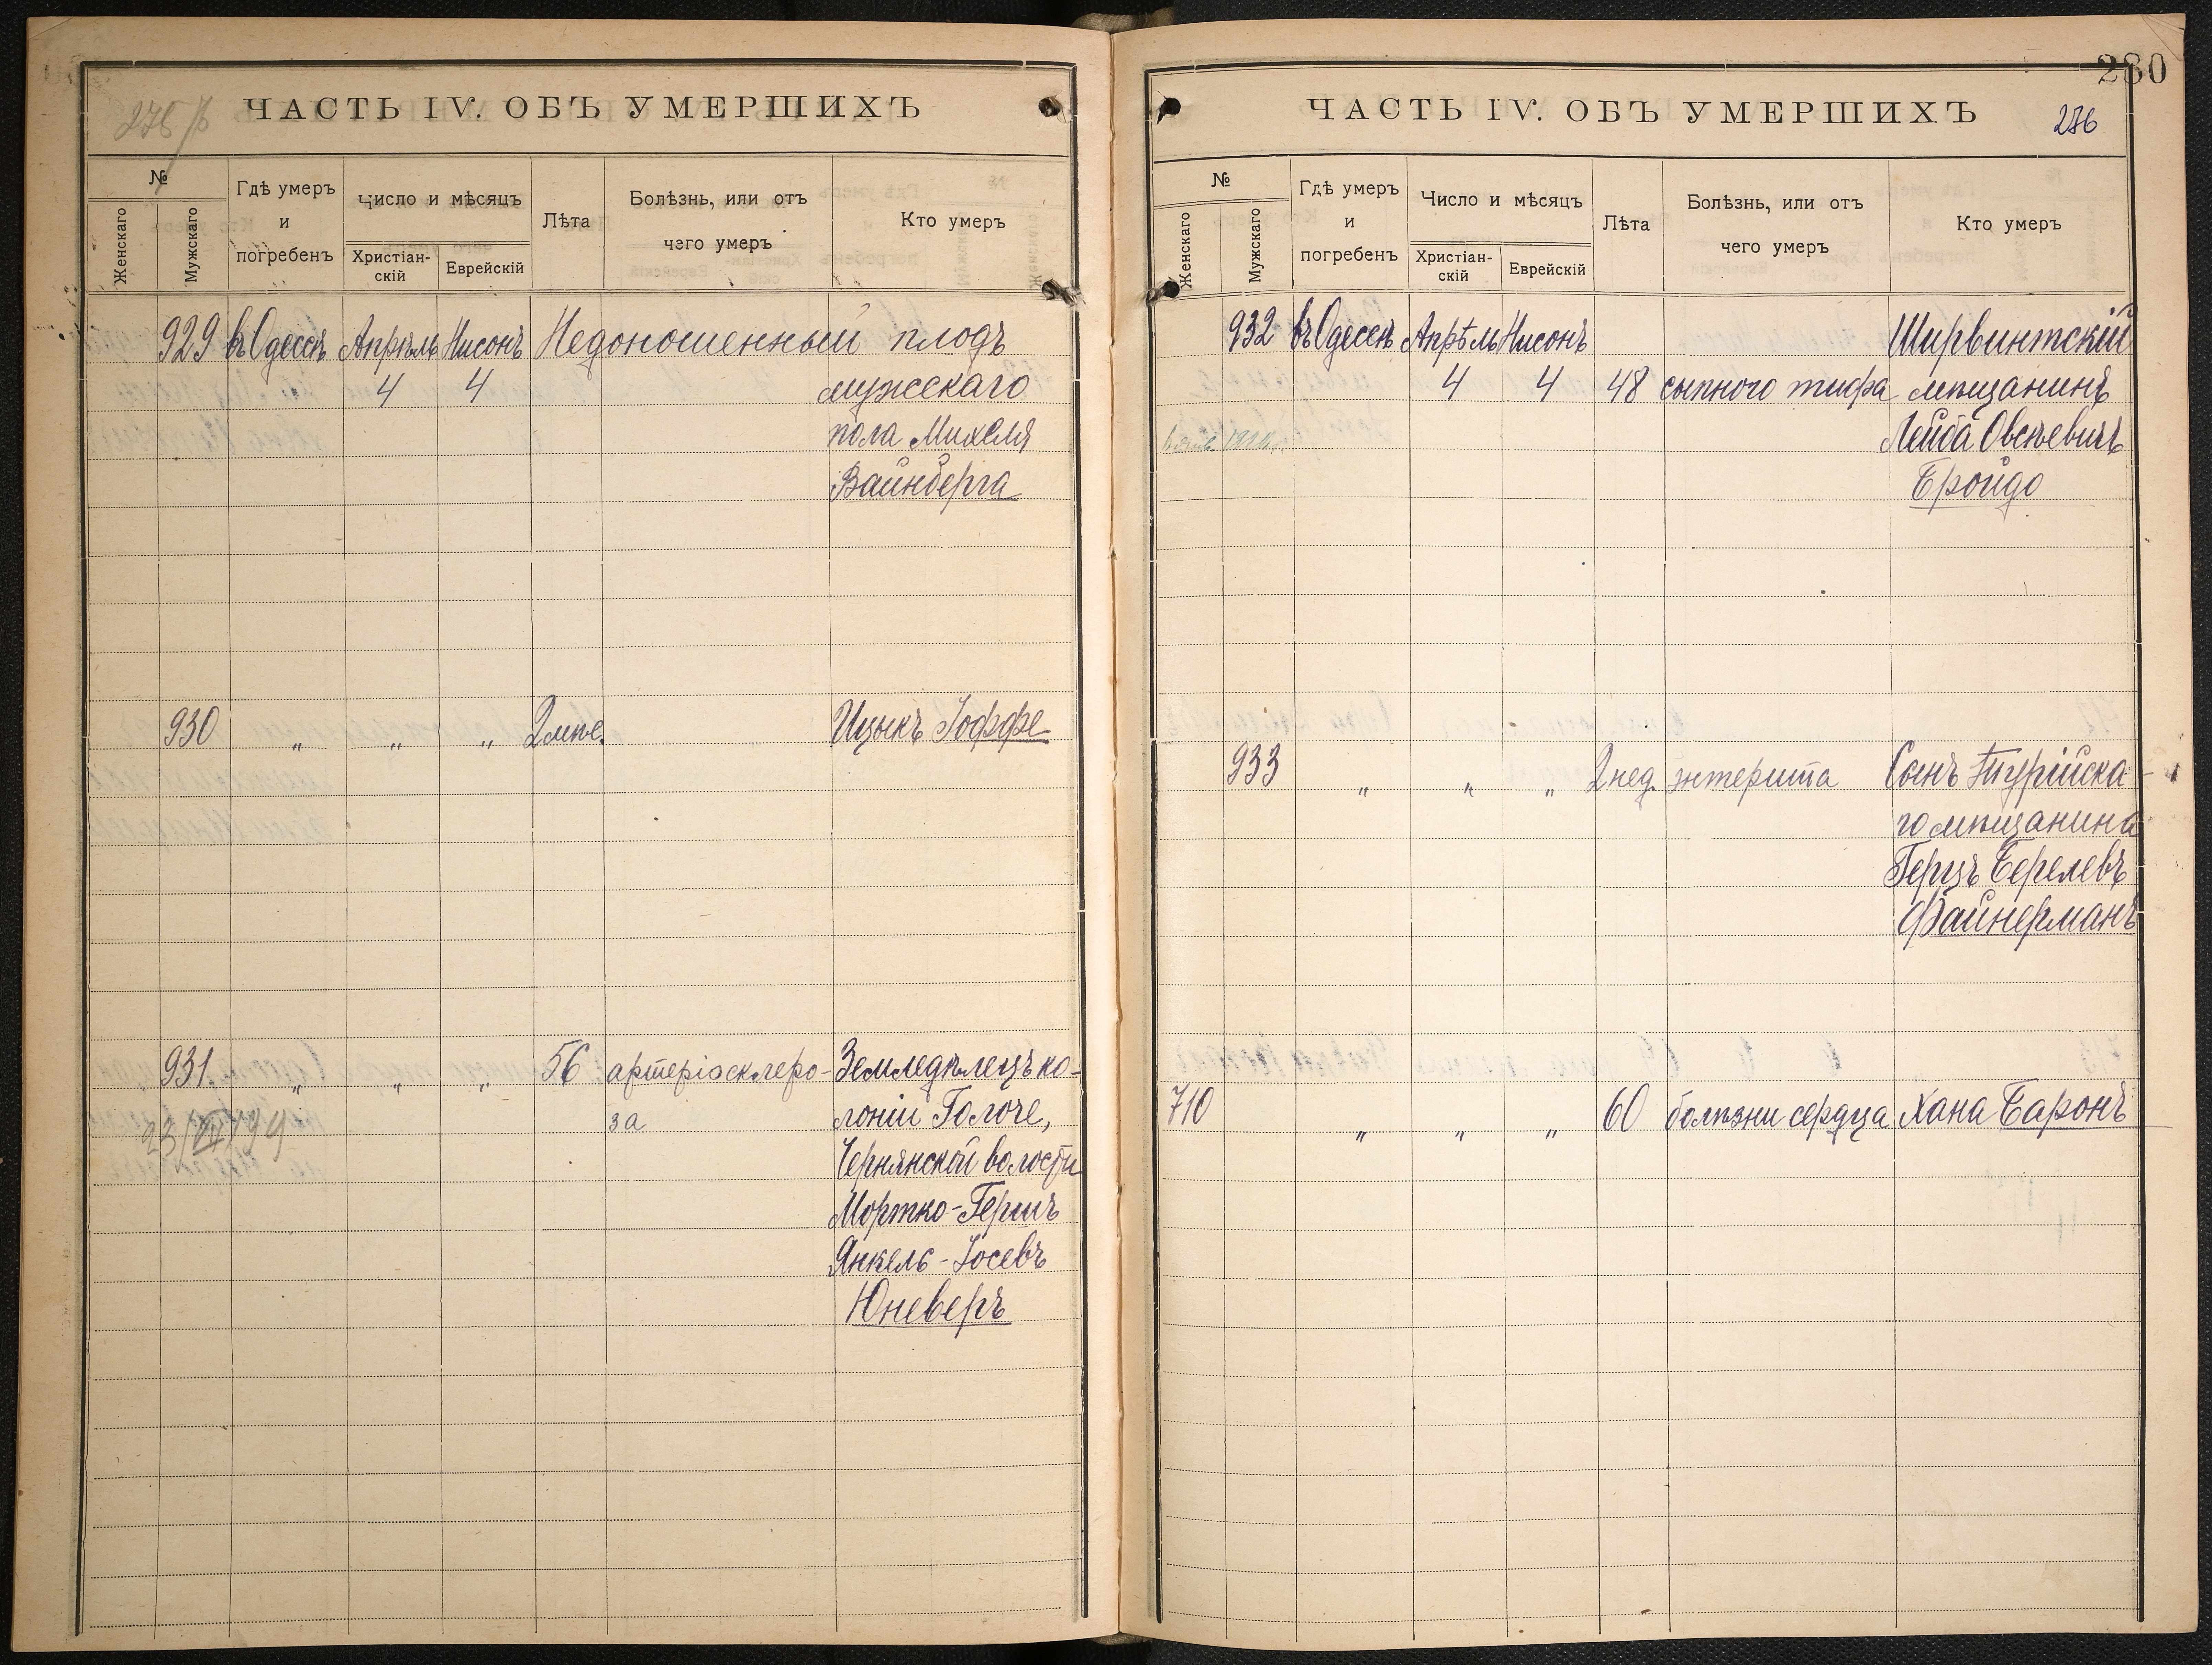 ЧАСТЬ IV. ОБЪ УМЕРШИХЪ
№
Женскаго
Мужскаго
Гдѣ умеръ
и
погребенъ
Число и мѣсяцъ
Христіан-
скій
Еврейскій
Лѣта
Болѣзнь, или отъ
чего умеръ
Кто умеръ
929 въ Одессѣ Апрѣль Нисонъ Недоношенный плодъ
4 4 мужскаго
пола Михеля
Вайнберга
930 " " " 2 мѣс. Ицыкъ Іоффе
931 " " " 56 артеріосклеро- Земледѣлецъ ко-
за лоніи Голоче,
Чернянской волости
Мортко-Гершъ
Янкель-Іосевъ
Юневеръ
280
ЧАСТЬ IV. ОБЪ УМЕРШИХЪ 276
№
Женскаго
Мужскаго
Гдѣ умеръ
и
погребенъ
Число и мѣсяцъ
Христіан-
скій
Еврейскій
Лѣта
Болѣзнь, или отъ
чего умеръ
Кто умеръ
932 въ Одессѣ Апрѣль Нисонъ Ширвинтскій
4 4 48 сыпного тифа мѣщанинъ
Лейба Овсѣевичъ
Бройдо
933 " " " 2 нед. энтерита Сынъ Турійска-
го мѣщанина
Герцъ Берелевъ
Файнерманъ
710 " " " 60 болѣзни сердца Хана Баронъ